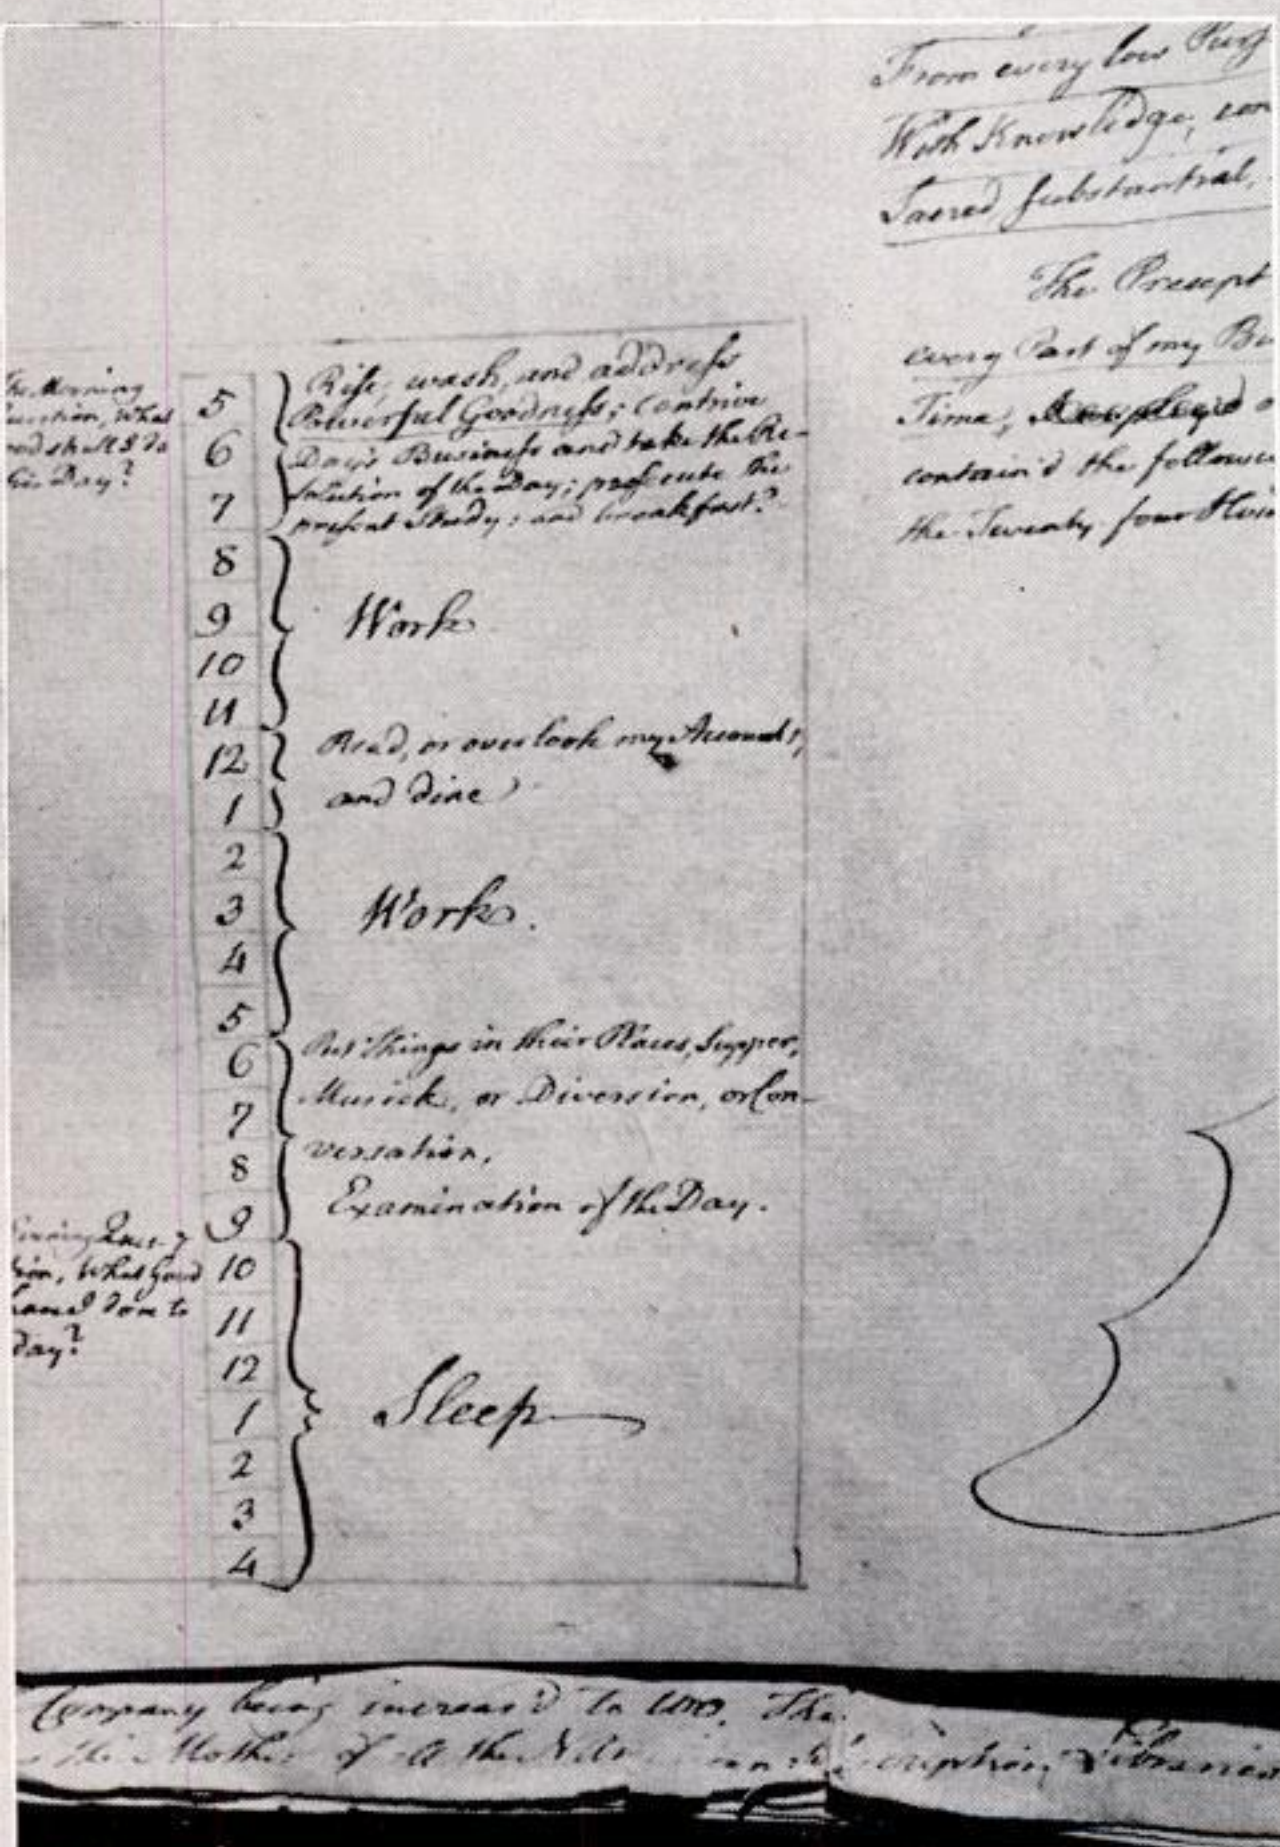 From every low
With Knowledge,
Sacred substantial,
The Precept
every Part of my
Time,
contain'd the
the Twenty four
Morning
What
shall I do
Day?
5
6
7
Rise, wash, and address
Powerful Goodness; contrive
Day's Business and take the Re-
solution of the Day; prosecute the
present Study; and breakfast?
8
9
10
11
Work
12
1
Read, or overlook my Accounts,
and dine
2
3
4
5
Work.
6
7
8
9
Put Things in their Places, Supper,
Musick, or Diversion, or Con-
versation,
Examination of the Day.
What Good
done to
day?
10
11
12
1
2
3
4
Sleep
Company being increas'd to 100. The
the Mother of the Libraries